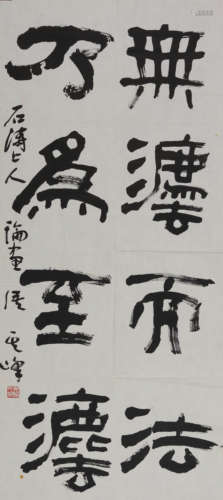 無灋而法
乃爲至灋
石濤上人論畫語其峰